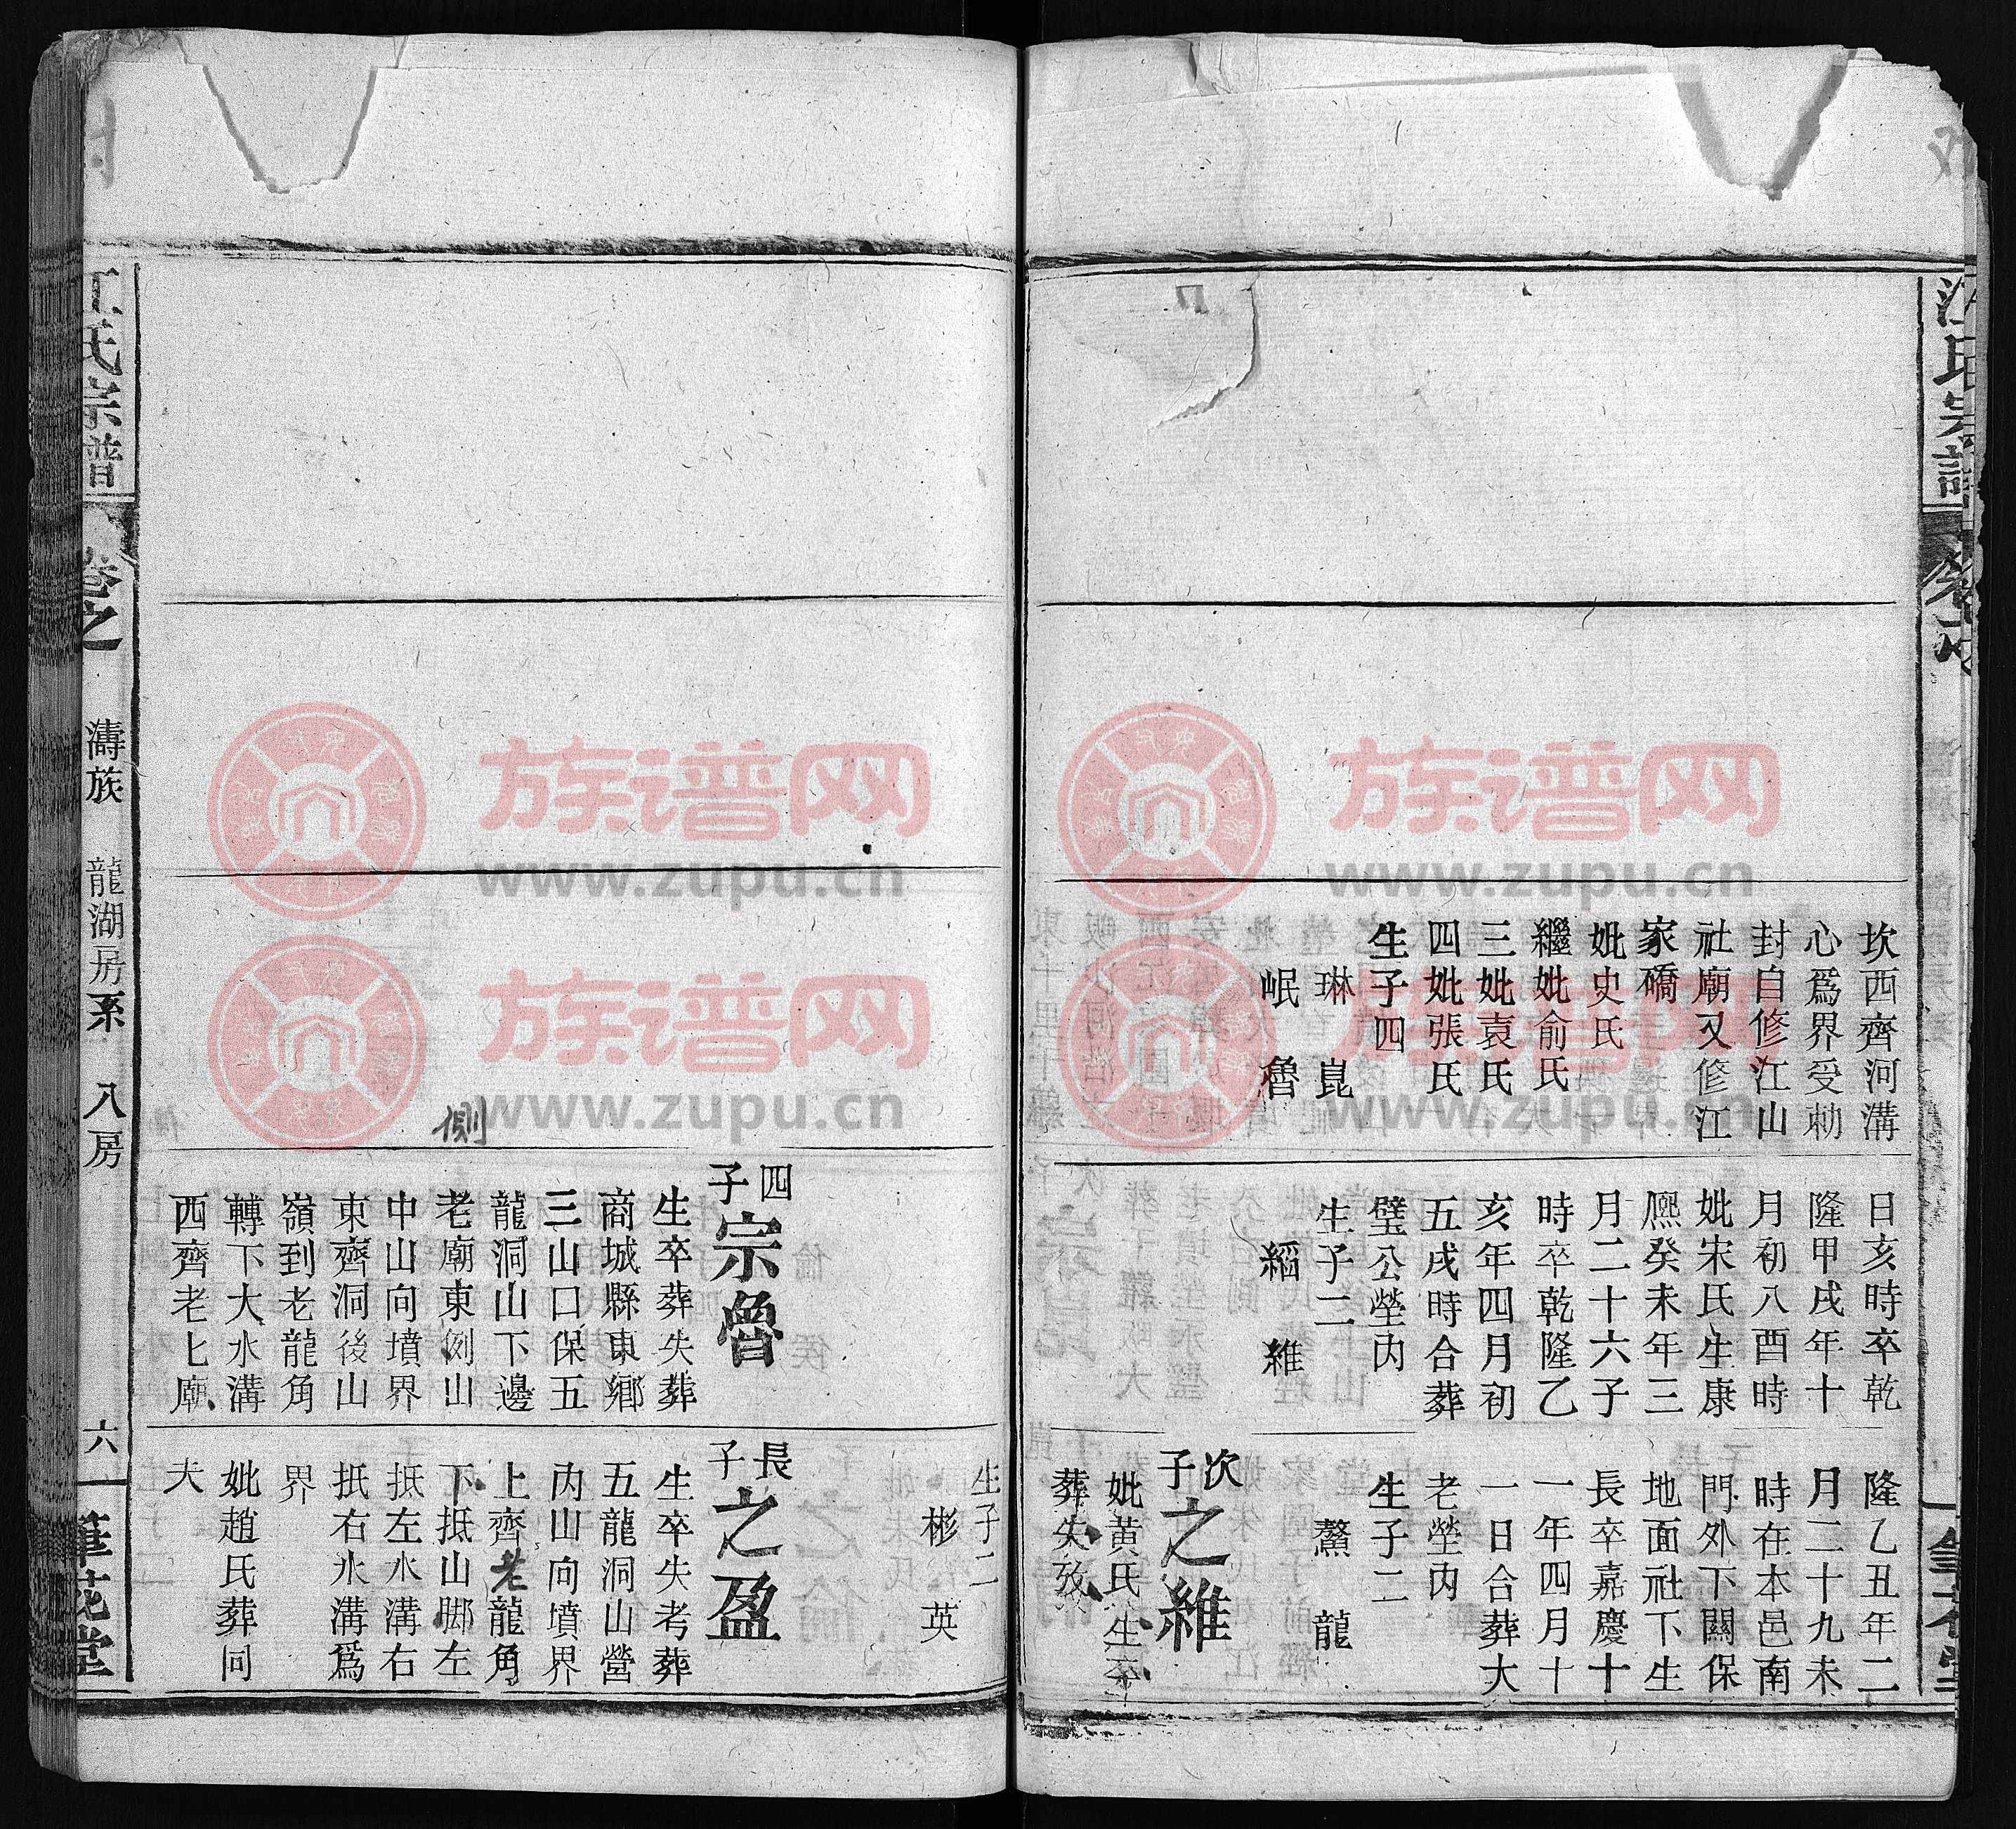 江氏宗譜
坎西齊河溝
心爲界受勅
封自修江山
社廟又修江
家礄
妣史氏
繼妣俞氏
三妣袁氏
四妣張氏
生子四
琳 崑
岷 魯
日亥時卒乾
隆甲戌年十
月初八酉時
妣宋氏生康
熈癸未年三
月二十六子
時卒乾隆乙
亥年四月初
五戌時合葬
璧公塋內
生子二
縚 維
隆乙丑年二
月二十九未
時在本邑南
門外下關保
地面社下生
長卒嘉慶十
一年四月十
一日合葬大
老塋內
生子二
鰲 龍
次子之維
妣黄氏生卒
葬失攷
四子宗魯
生卒葬失葬
商城縣東鄉
三山口保五
龍洞山下邊
老廟東側山
中山向墳界
東齊洞後山
嶺到老龍角
轉下大水溝
西齊老七廟
側
生子二
彬 英
長子之盈
生卒失考葬
五龍洞山營
內山向墳界
上齊老龍角
下抵山脚左
抵左水溝右
抵右水溝爲
界
妣趙氏葬同
夫
江氏宗譜 卷之 濤族 龍湖房系 八房 六 華花堂
族谱网
www.zupu.cn
族谱网
www.zupu.cn
族谱网
www.zupu.cn
族谱网
www.zupu.cn